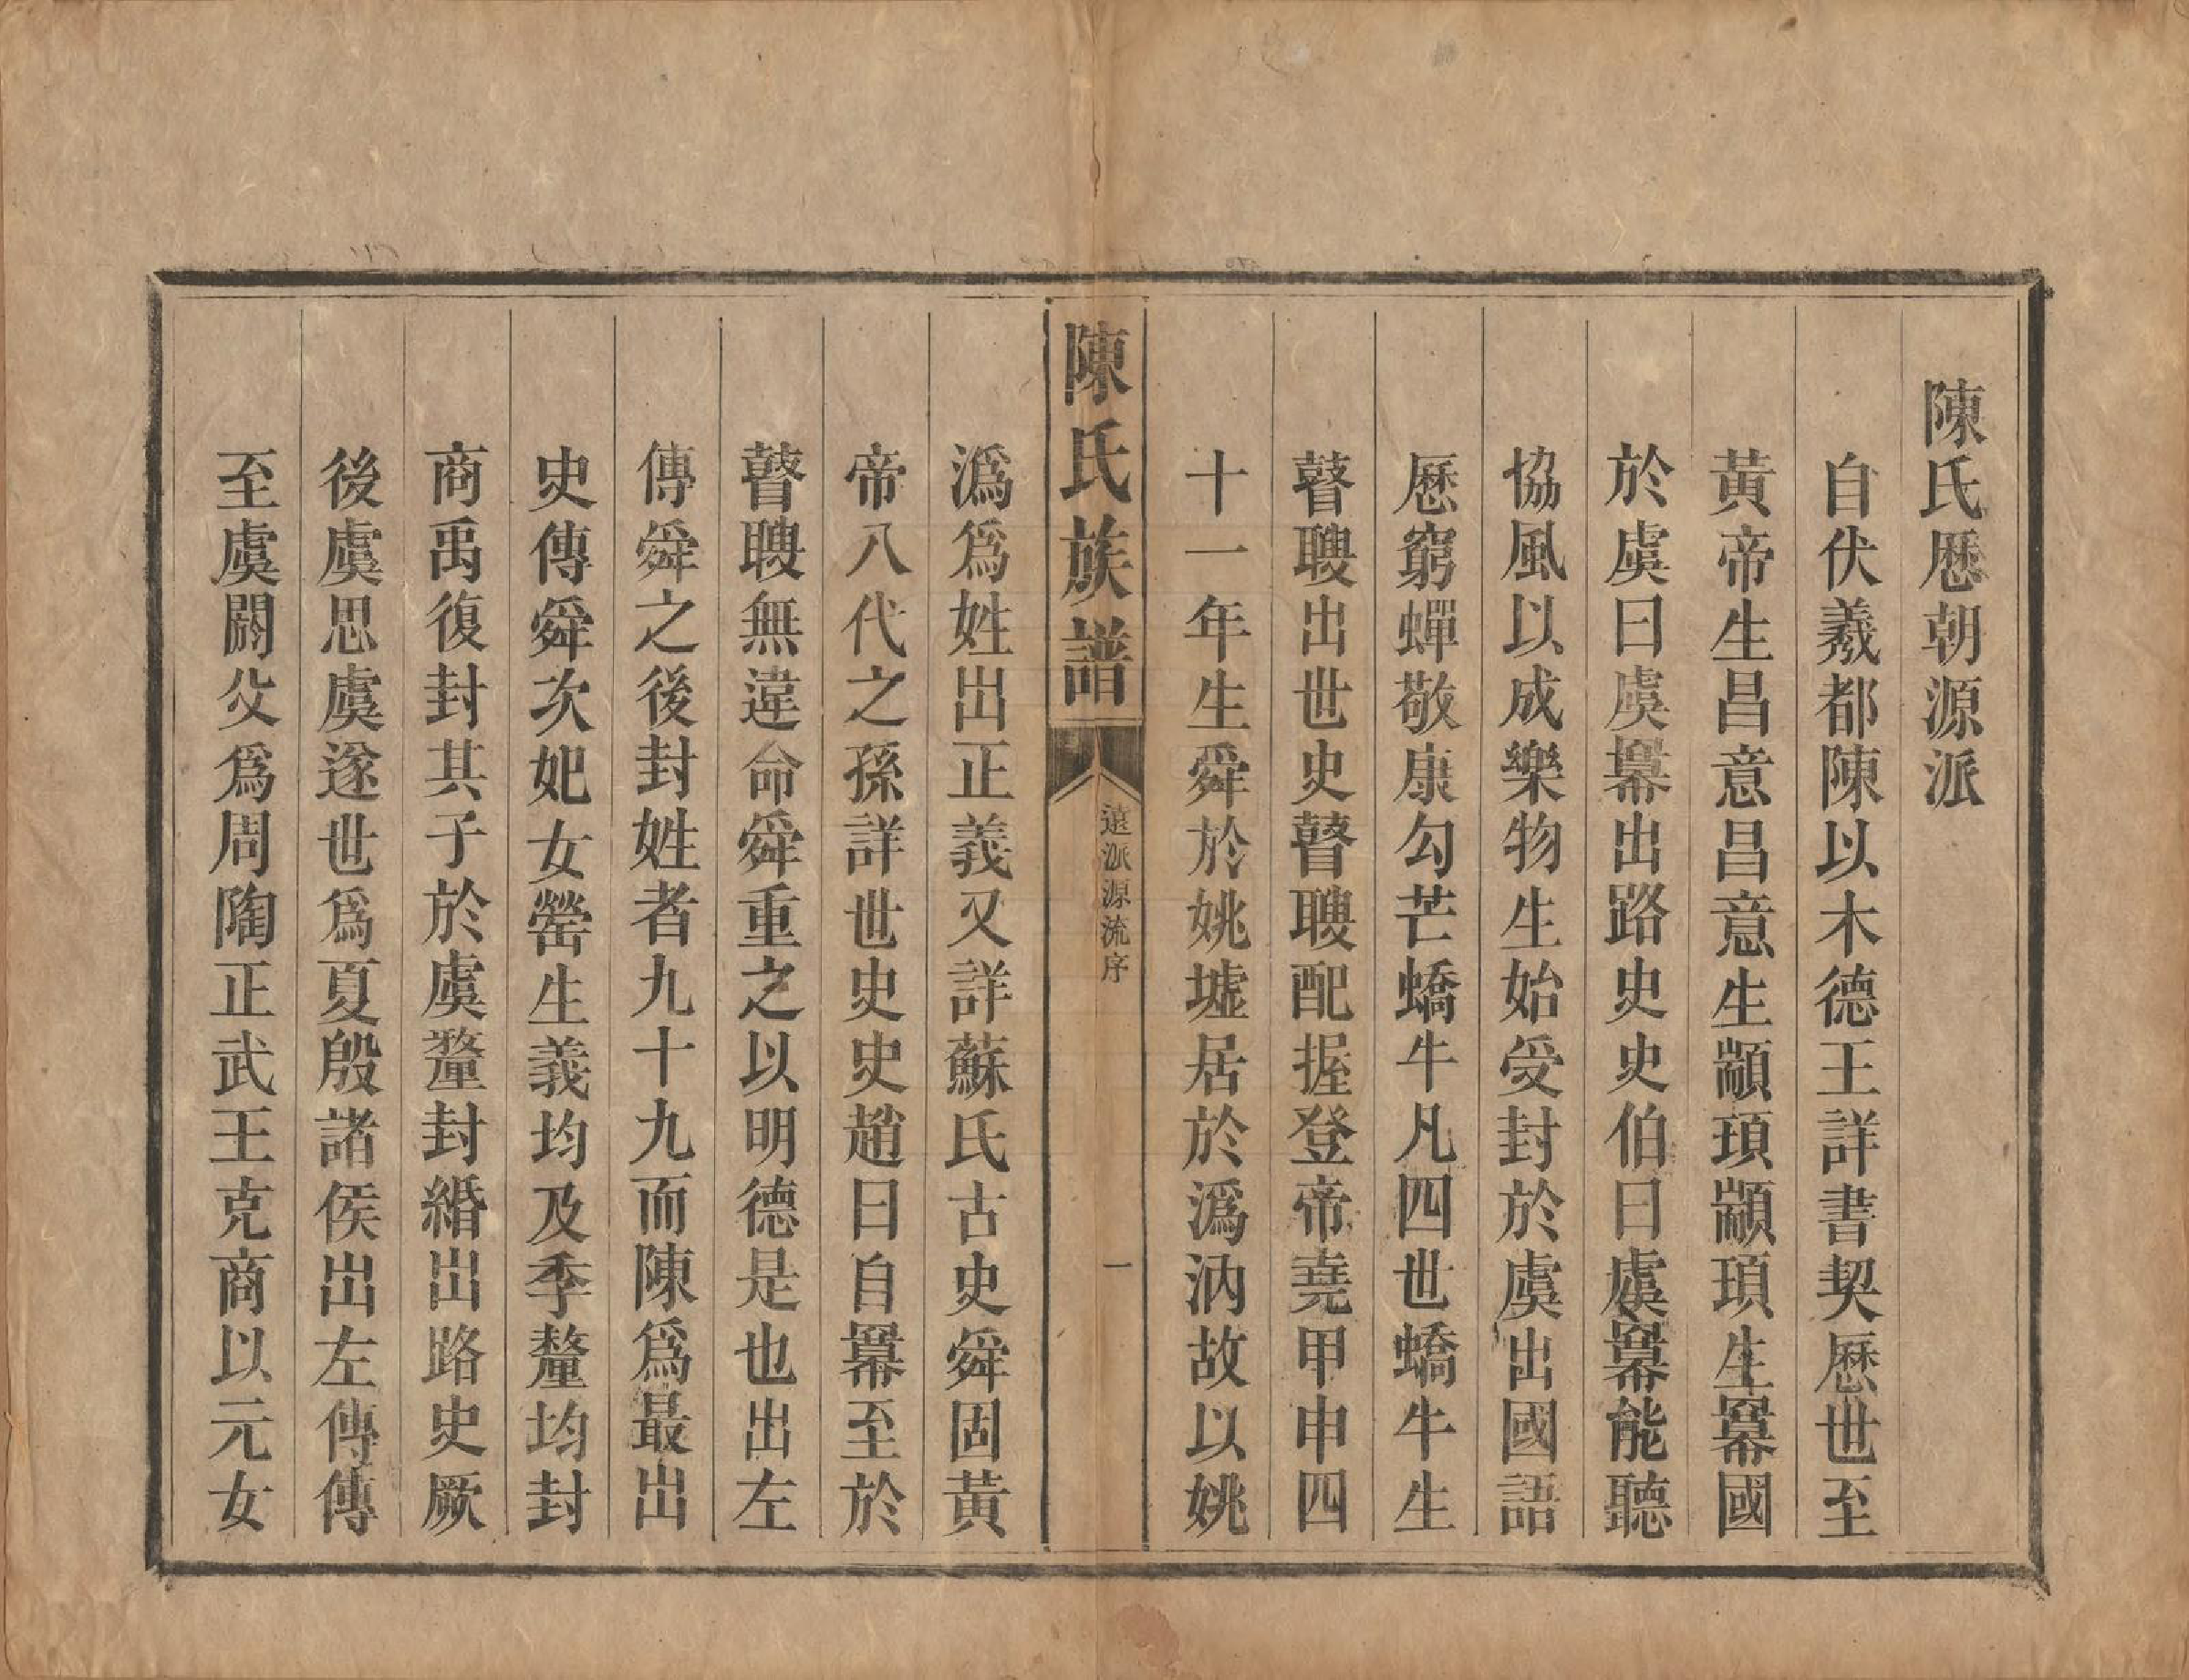 陳氏歴朝源派
自伏羲都陳以木德王詳書契歴世至
黃帝生昌意昌意生顓頊顓頊生幕國
於虞曰虞幕出路史史伯曰虞幕能聽
協風以成樂物生始受封於虞出國語
歴窮蟬敬康勾芒蟜牛凡四世蟜牛生
瞽瞍出世史瞽瞍配握登帝堯甲申四
十一年生舜於姚墟居於溈汭故以姚
陳氏族譜
遠派源流序
一
溈爲姓出正義又詳蘇氏古史舜固黃
帝八代之孫詳世史史趙曰自幕至於
瞽瞍無違命舜重之以明德是也出左
傳舜之後封姓者九十九而陳爲最出
史傳舜次妃女罃生義均及季釐均封
商禹復封其子於虞釐封緡出路史厥
後虞思虞遂世爲夏殷諸侯出左傳傳
至虞閼父爲周陶正武王克商以元女